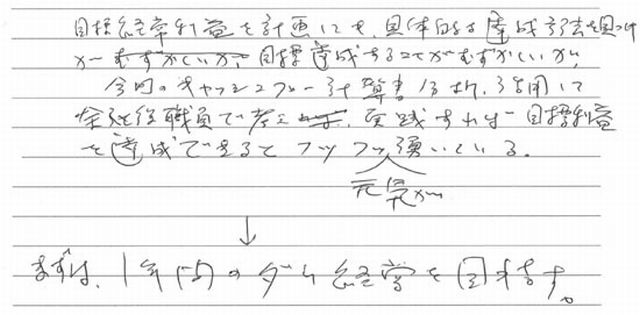 目標経常利益を計画しても、具体的な達成方法を見つけ
がむずかしいか、目標達成することがむずかしいが、
今回のキャッシュフロー計算書分析、活用して
全社役職員で考え、実践すれば目標利益
を達成できるとフツフツ湧いている。
元気が
↓
まずは、1年間のダム経営を目指す。